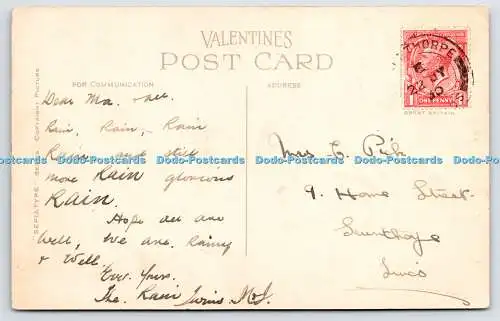 VALENTINES
POST CARD
FOR COMMUNICATION
ADDRESS
THORPE
JY
ONE PENNY
GREAT BRITAIN
SEPIATYPE SERIES COPYRIGHT PICTURE
Dear Ma. all
Rain, Rain, Rain
Rain and still
more RAIN glorious
RAIN.
Hope all are
Well, We are. Rainy
& Well
Ever Yours.
The. Rain Twins
Mrs E. Pik
9. Home Street
Scunthorpe
Lincs
Dodo-Postcards Dodo-Postcards Dodo-Postcards Dodo-Postcards Dodo-Postcards Dodo-Postcards